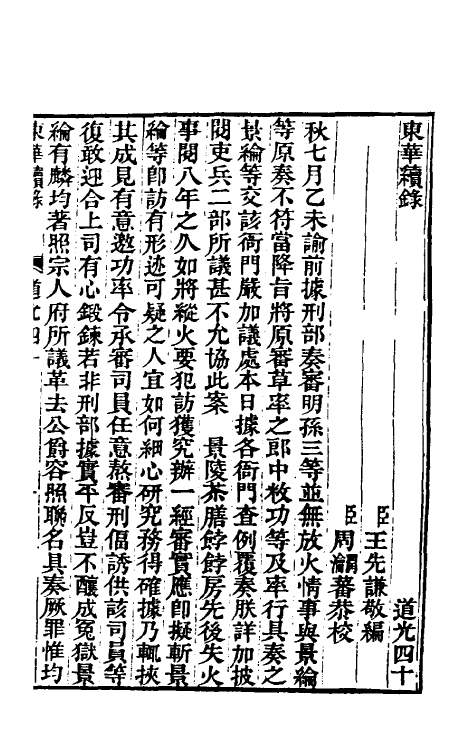 東華續錄
道光四十
臣王先謙敬編
臣周瀹蕃恭校
秋七月乙未諭前據刑部奏審明孫三等並無放火情事與景綸
等原奏不符當降旨將原審草率之郎中敉功等及率行具奏之
景綸等交該衙門嚴加議處本日據各衙門查例覆奏朕詳加披
閱吏兵二部所議甚不允協此案 景陵茶膳餑餑房先後失火
事閱八年之久如將縱火要犯訪獲究辦一經審實應即擬斬景
綸等卽訪有形迹可疑之人宜如何細心研究務得確據乃輒挾
其成見有意邀功率令承審司員任意熬審刑偪誘供該司員等
復敢迎合上司有心鍛鍊若非刑部據實平反豈不釀成冤獄景
綸有麟均著照宗人府所議革去公爵容照聯名具奏厥罪惟均
東華續錄 道光四十 一